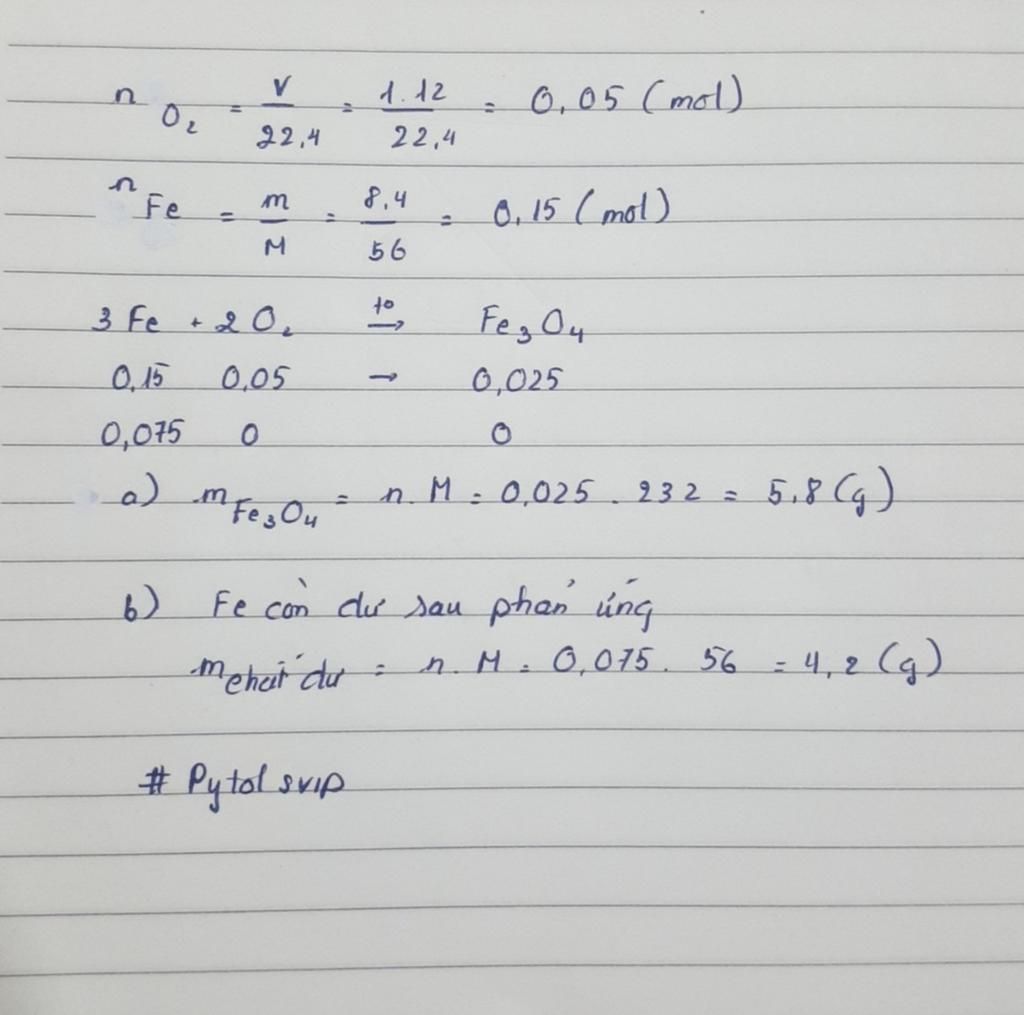 n O₂ = V/22,4 = 1.12/22,4 = 0,05 (mol)
n Fe = m/M = 8,4/56 = 0,15 (mol)
3 Fe + 2 O₂ →(t°) Fe₃O₄
0,15 0,05 → 0,025
0,075 0 0
a) m Fe₃O₄ = n.M = 0,025 . 232 = 5,8 (g)
b) Fe còn dư sau phản ứng
m chất dư = n.M = 0,075 . 56 = 4,2 (g)
# Pytol svip